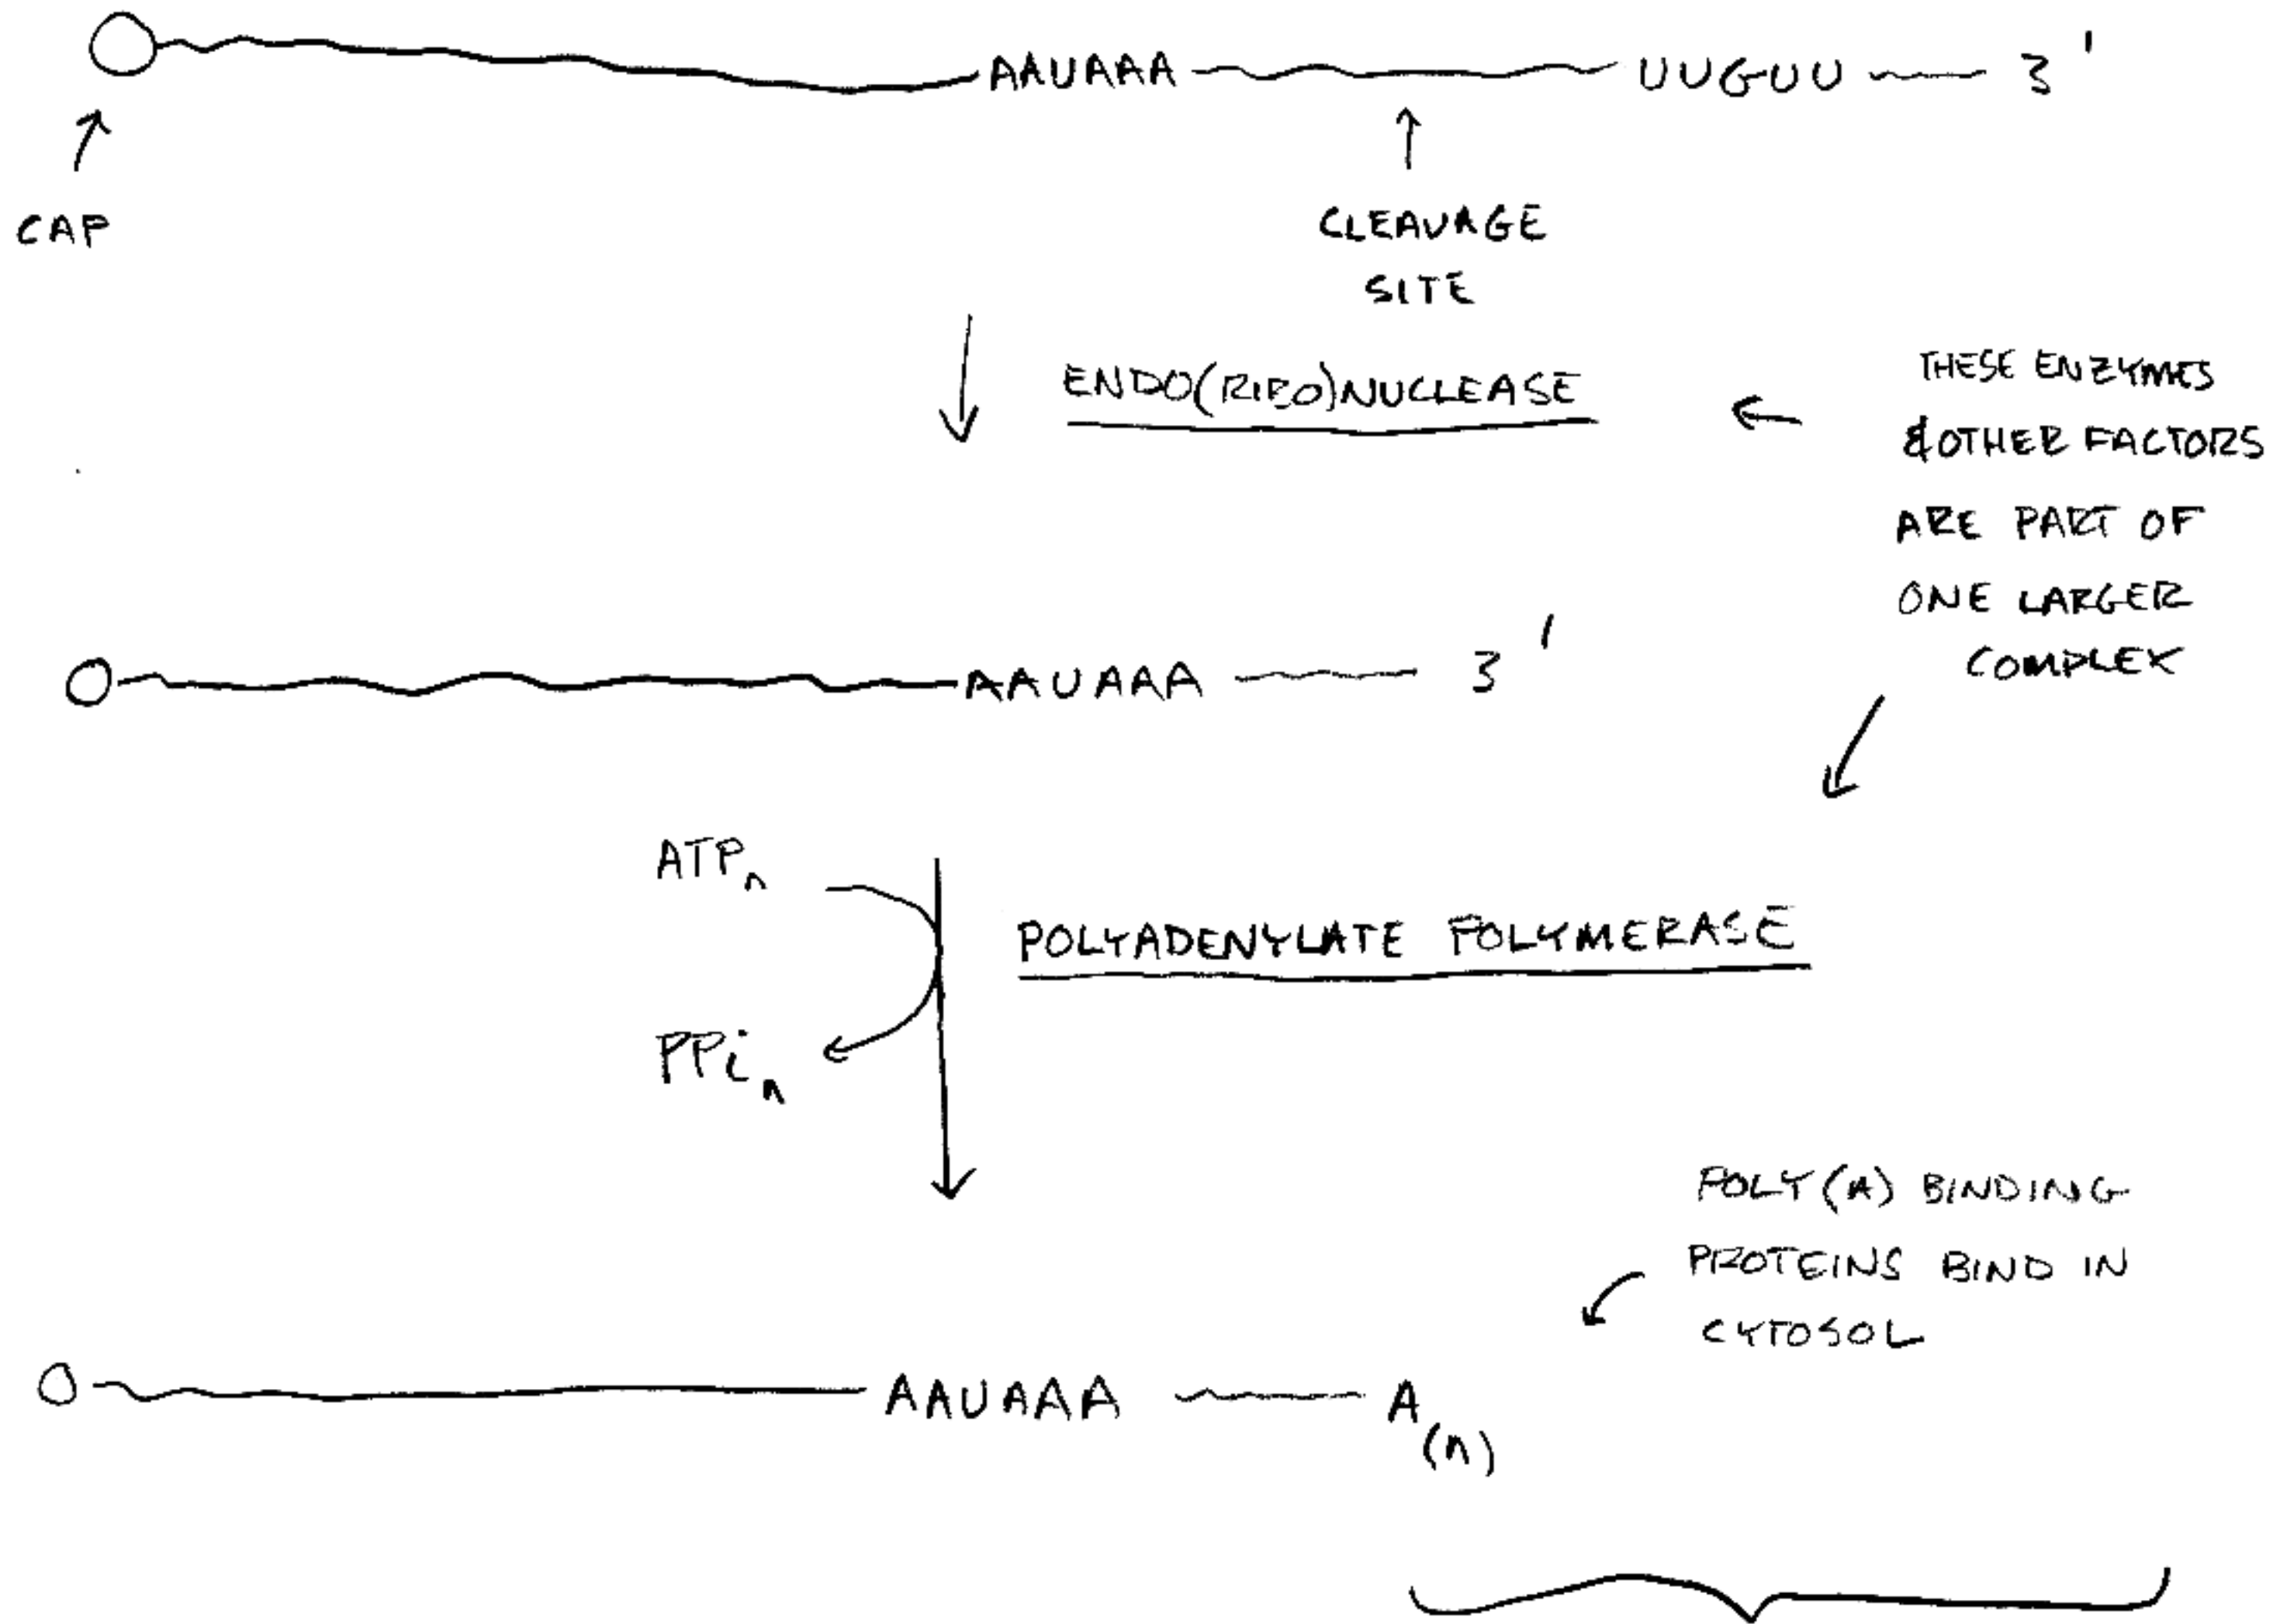 AAUAAA UUGUU 3'
CAP
CLEAVAGE
SITE
ENDO(RIBO)NUCLEASE
THESE ENZYMES
& OTHER FACTORS
ARE PART OF
ONE LARGER
COMPLEX
AAUAAA 3'
ATPn
POLYADENYLATE POLYMERASE
PPin
POLY(A) BINDING
PROTEINS BIND IN
CYTOSOL
AAUAAA A(n)